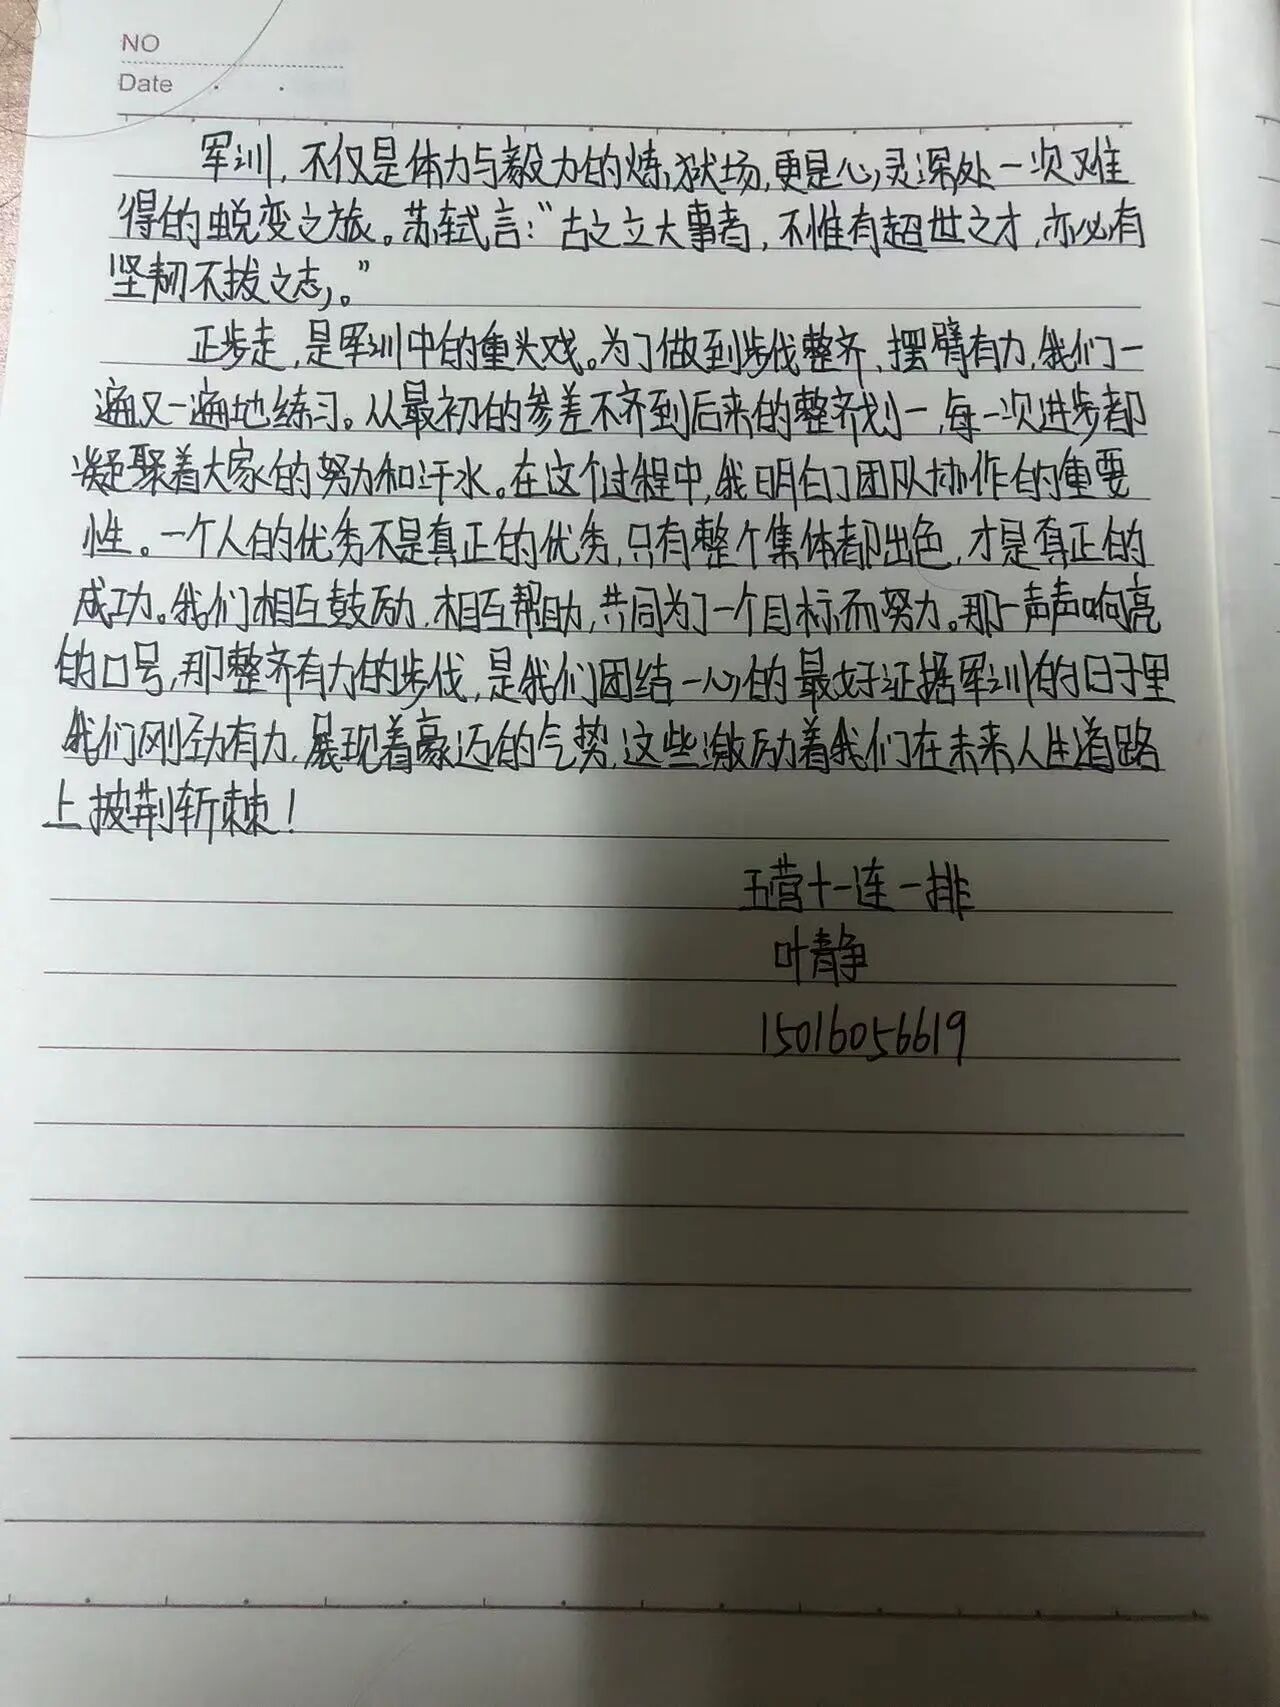 NO
Date
军训，不仅是体力与毅力的炼狱场，更是心灵深处一次难
得的蜕变之旅。苏轼言：“古之立大事者，不惟有超世之才，亦必有
坚韧不拔之志。”
正步走，是军训中的重头戏。为了做到步伐整齐，摆臂有力，我们一
遍又一遍地练习。从最初的参差不齐到后来的整齐划一，每一次进步都
凝聚着大家的努力和汗水。在这个过程中，我明白了团队协作的重要
性。一个人的优秀不是真正的优秀，只有整个集体都出色，才是真正的
成功。我们相互鼓励，相互帮助，共同为了一个目标而努力。那一声声响亮
的口号，那整齐有力的步伐，是我们团结一心的最好证据军训的日子里
我们刚劲有力，展现着豪迈的气势，这些激励着我们在未来人生道路
上披荆斩棘！
五营十一连一排
叶静
15016056619